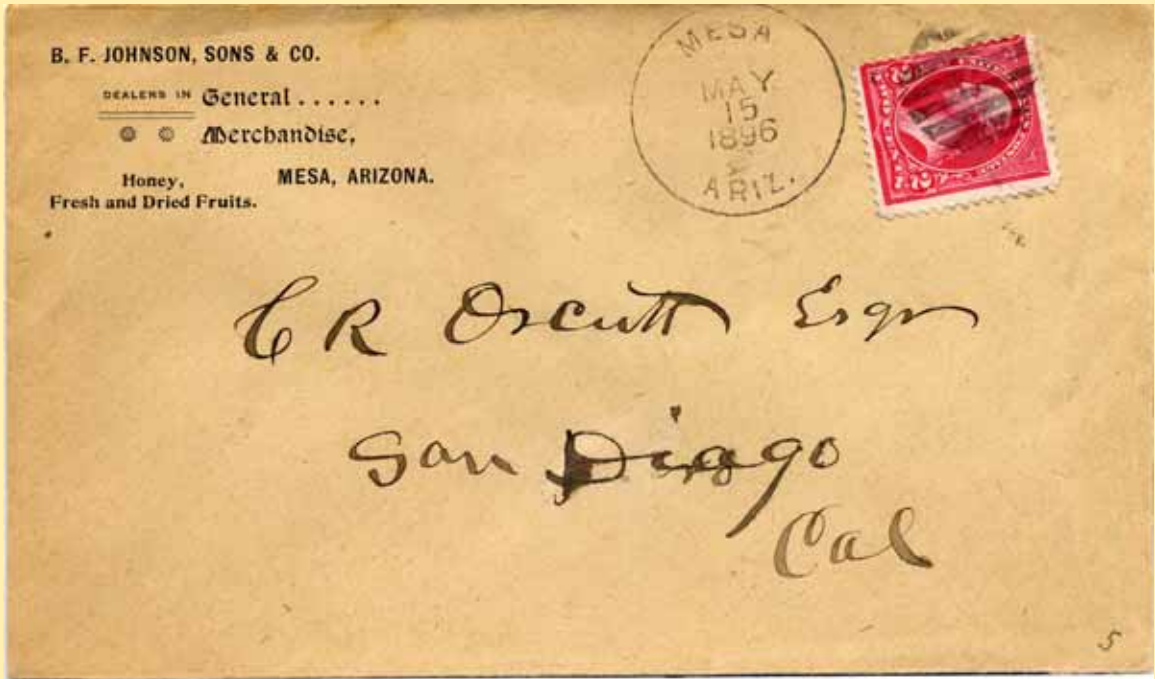 B. F. JOHNSON, SONS & CO.
DEALERS IN General ......
Merchandise,
Honey, MESA, ARIZONA.
Fresh and Dried Fruits.
MESA
MAY
15
1896
ARIZ.
C R Orcutt Esqr
San Diago
Cal
5